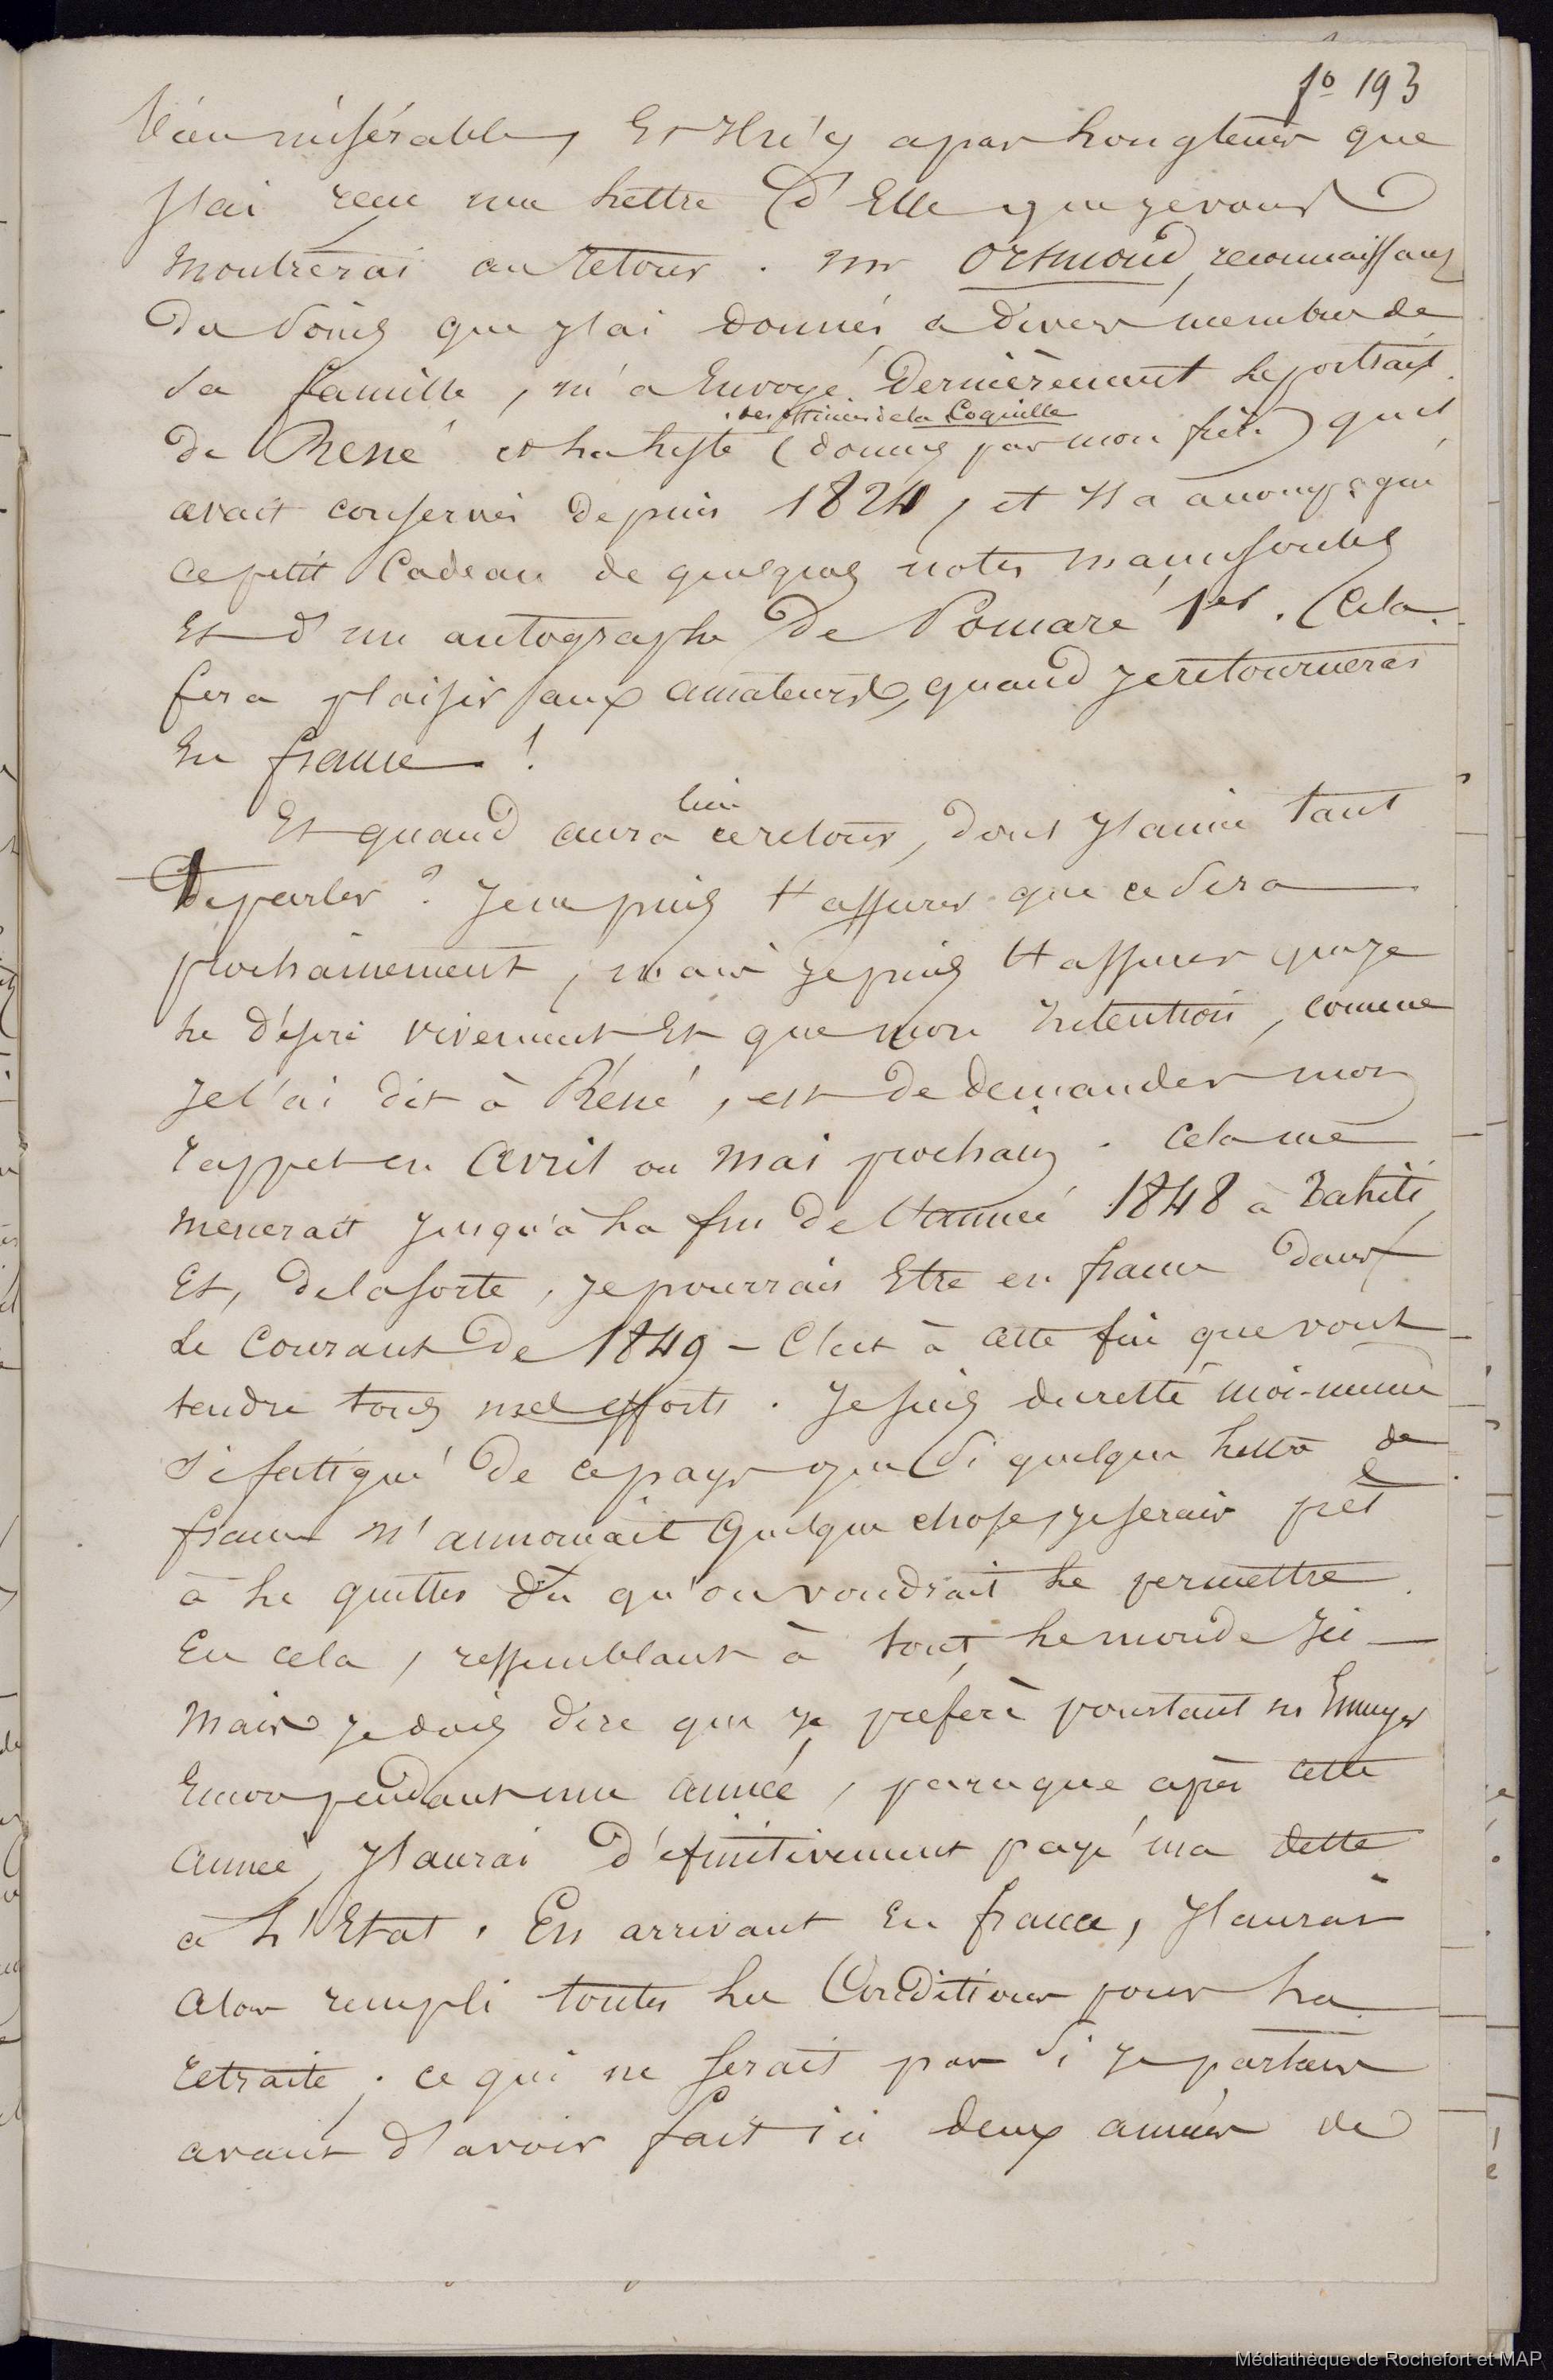 fo 193
bien misérable, Et Il n'y a pas Longtems que
J'ai reçu une Lettre d'Elle que je vous
montrerai au retour. Mr Orsmond, reconnaissant
des soins que J'ai donnés à divers membres de
sa famille, m'a Envoyé dernièrement Le portrait
des officiers de la Coquille
de René et La Liste (donnés par mon frère) qu'il
avait conservés depuis 1824, et Il a accompagné
ce petit Cadeau de quelques notes manuscrites
Et d'un autographe de Pomaré 1er. (Cela
fera plaisir aux amateurs), quand je retournerai
En france !
lieu
Et quand aura ce retour, dont J'aime tant
De parler ? Je ne puis t'assurer que ce sera
prochainement, mais Je puis t'assurer que je
Le désire vivement Et que mon Intention, comme
Je l'ai dit à Réné, est de demander mon
rappel en Avril ou Mai prochain. Cela me
menerait jusqu'à La fin de l'année 1848 à Tahiti,
Et, de la sorte, je pourrais Etre en france dans
Le Courant de 1849 - C'est à cette fin que vont
tendre tous mes efforts. Je suis du reste moi-même
si fatigué de ce pays que si quelque Lettre de
france m'annonçait quelque chose, je serais prêt
à Le quitter dès qu'on voudrait Le permettre
En cela, ressemblant à tout Le monde Ici —
Mais je dois dire que je préfère pourtant m'Ennuyer
Encore pendant une année, parceque après cette
année, J'aurai définitivement payé ma dette
à L'Etat. En arrivant En france, J'aurai
alors rempli toutes Les Conditions pour La
retraite ; ce qui ne serait pas si je partais
avant d'avoir fait ici deux années de
Médiathèque de Rochefort et MAP